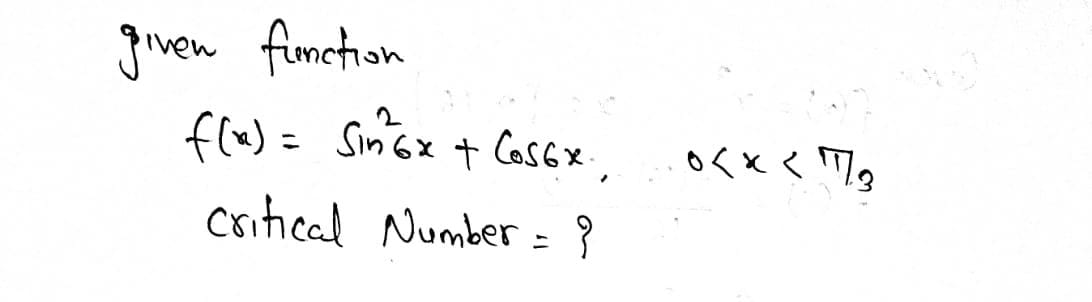 given function
f(x) = Sin²6x + Cos6x, 0<x<π/3
critical Number = ?